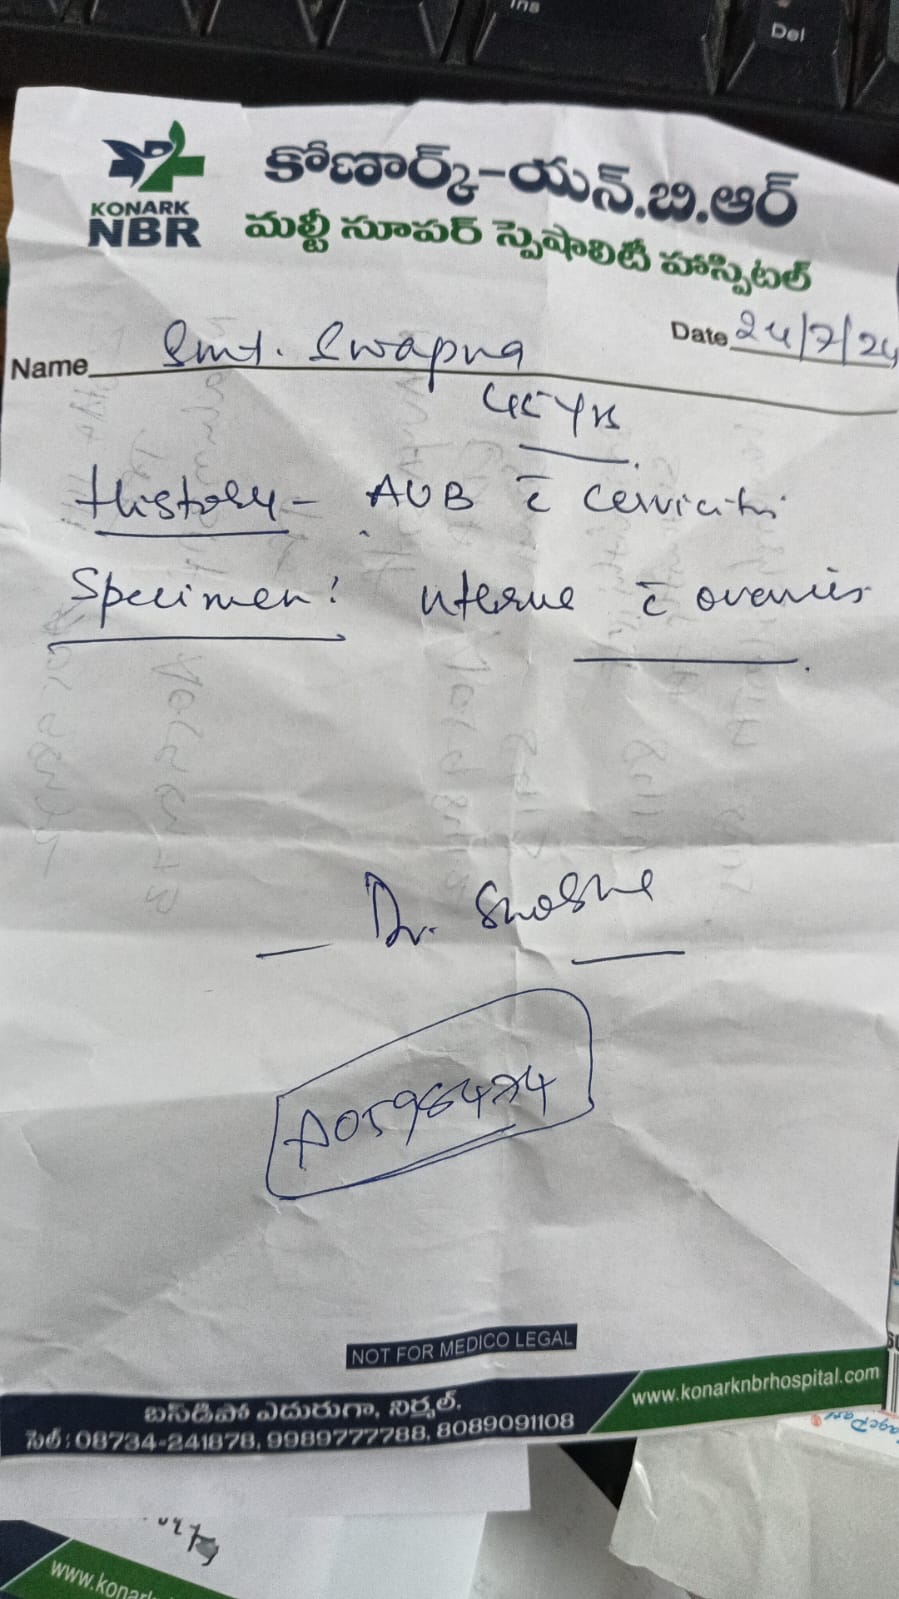 Ins
Del
KONARK
NBR
కోణార్క్-యన్.బి.ఆర్
మల్టీ సూపర్ స్పెషాలిటీ హాస్పిటల్
Date 24/7/24
Name Smt. Swapna
45 Yrs
History - AUB c̄ cervicitis
Specimen: uterus c̄ ovaries
- Dr. Shobha
A0598474
NOT FOR MEDICO LEGAL
బస్‌డిపో ఎదురుగా, నిర్మల్.
సెల్ : 08734-241878, 9989777788, 8089091108
www.konarknbrhospital.com
www.konark